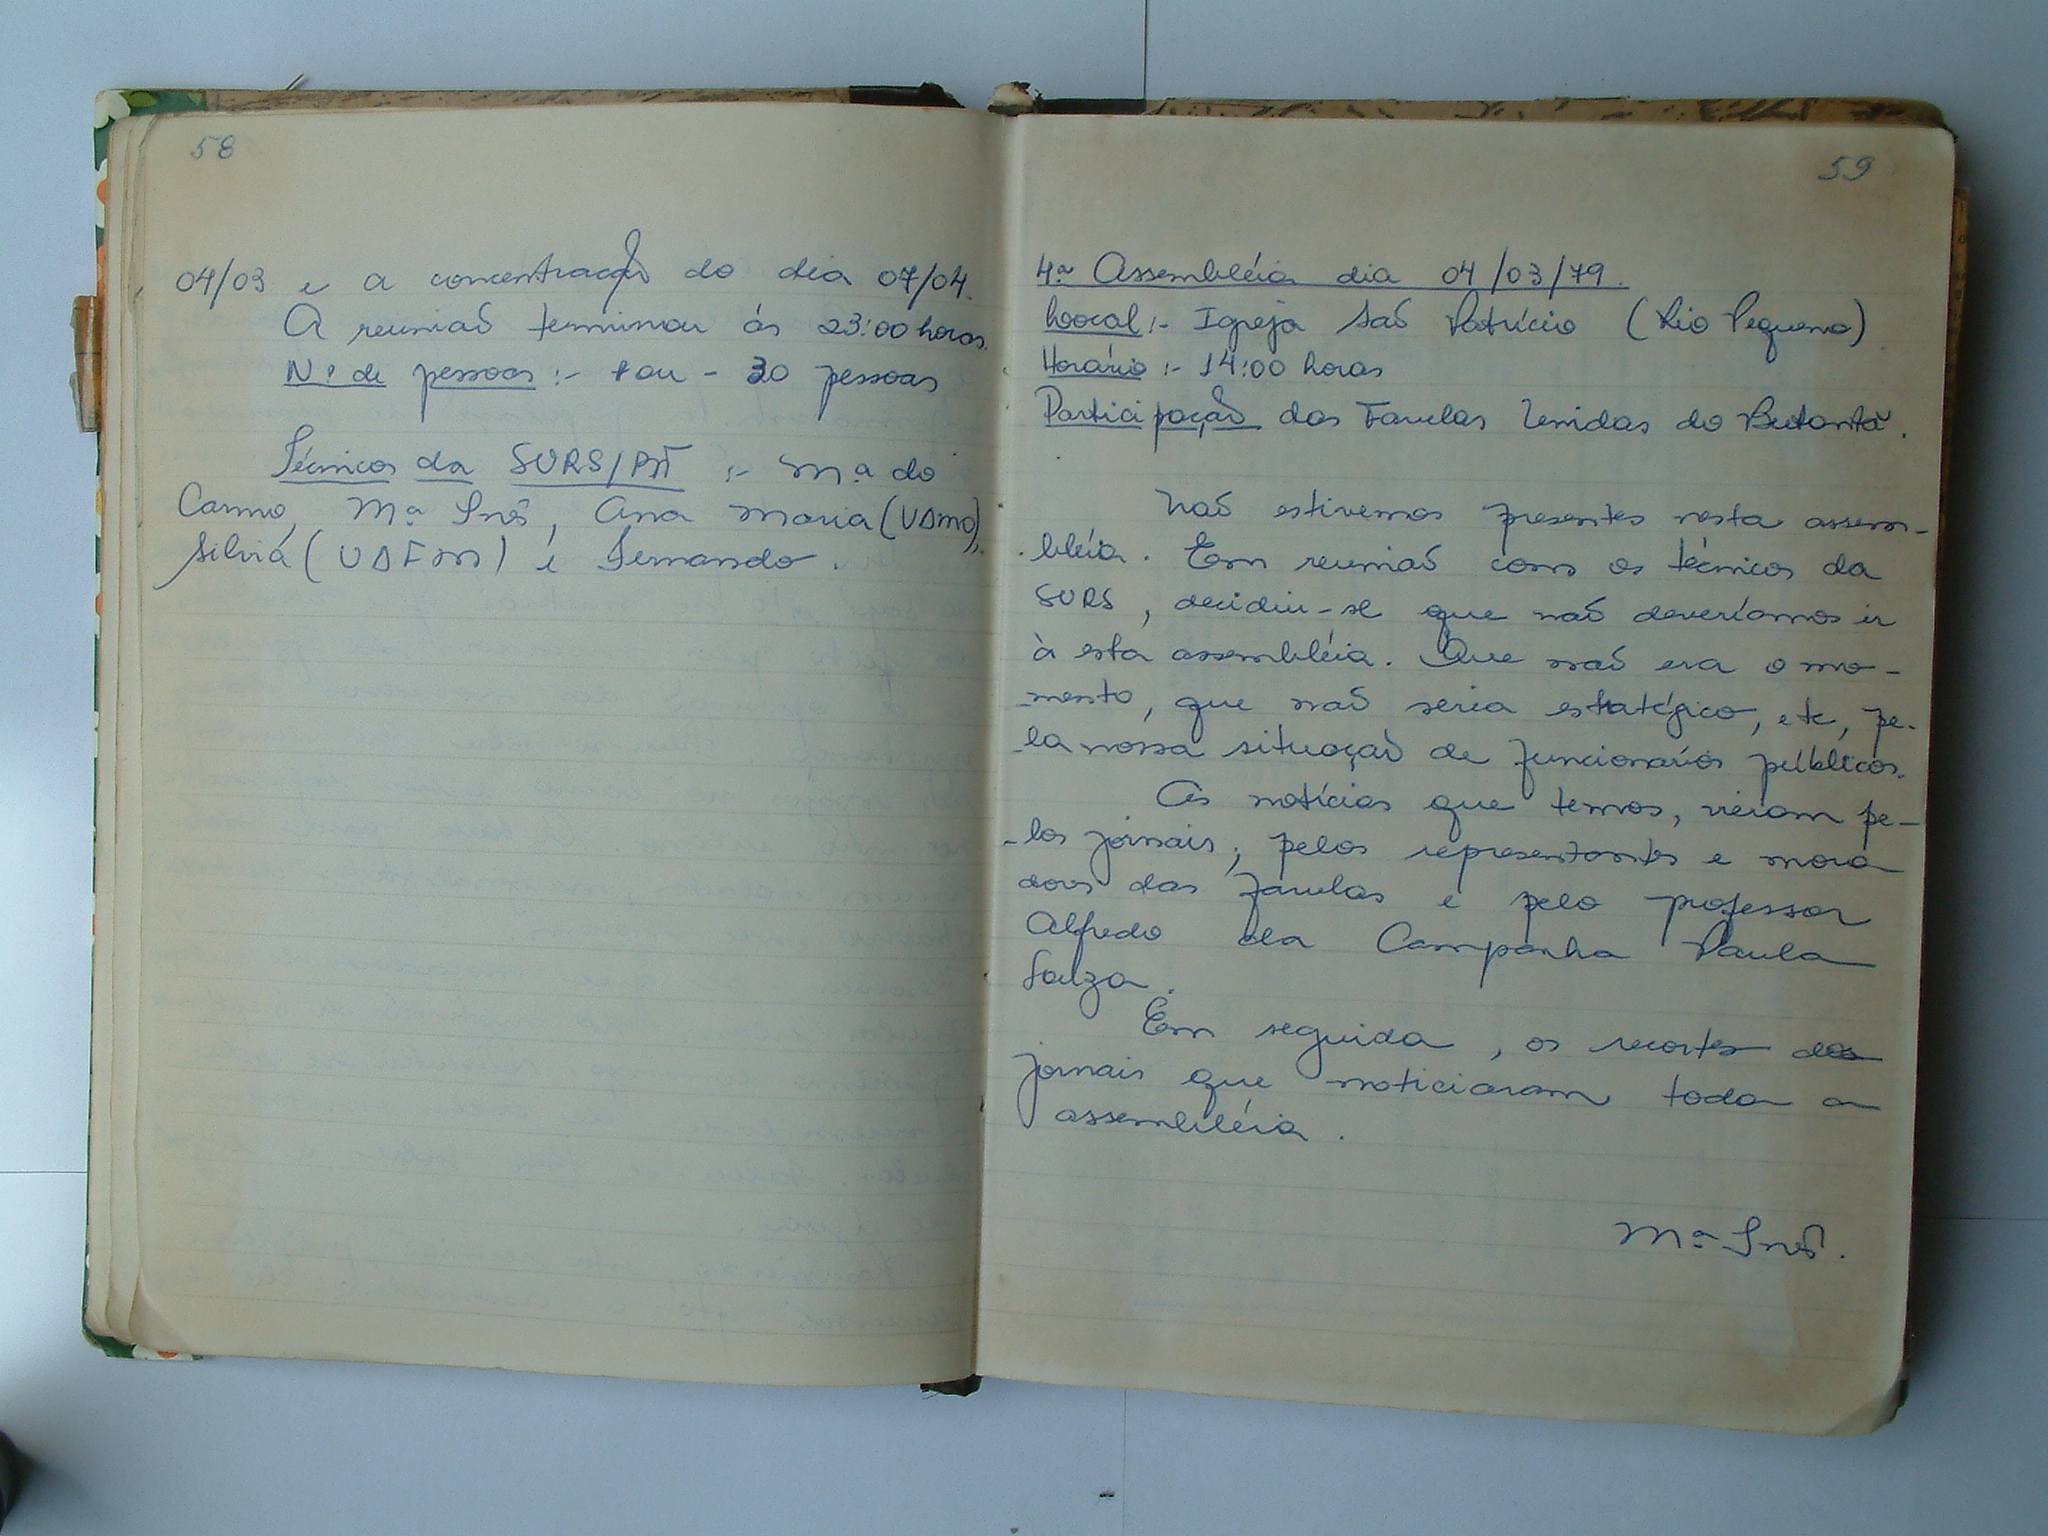 58
04/03 e a concentração do dia 07/04.
A reunião terminou às 23:00 horas.
Nº de pessoas :- + ou - 30 pessoas
Técnicos da SURS/PM :- Mª do
Carmo, Mª Inês, Ana Maria (UDMO),
Silvia (UDFM) e Fernando.
59
4ª Assembléia dia 04/03/79.
Local :- Igreja São Patrício (Rio Pequeno)
Horário :- 14:00 horas
Participação das Favelas Unidas do Butantã.
Não estivemos presentes nesta assem-
bléia. Em reunião com os técnicos da
SURS, decidiu-se que não deveríamos ir
à esta assembléia. Que não era o mo-
mento, que não seria estratégico, etc, pe-
-la nossa situação de funcionários públicos.
As notícias que temos, vieram pe-
-los jornais, pelos representantes e mora
dores das favelas e pelo professor
Alfredo da Campanha Paula
Souza.
Em seguida, os recortes dos
jornais que noticiaram toda a
assembléia.
Mª Inês.